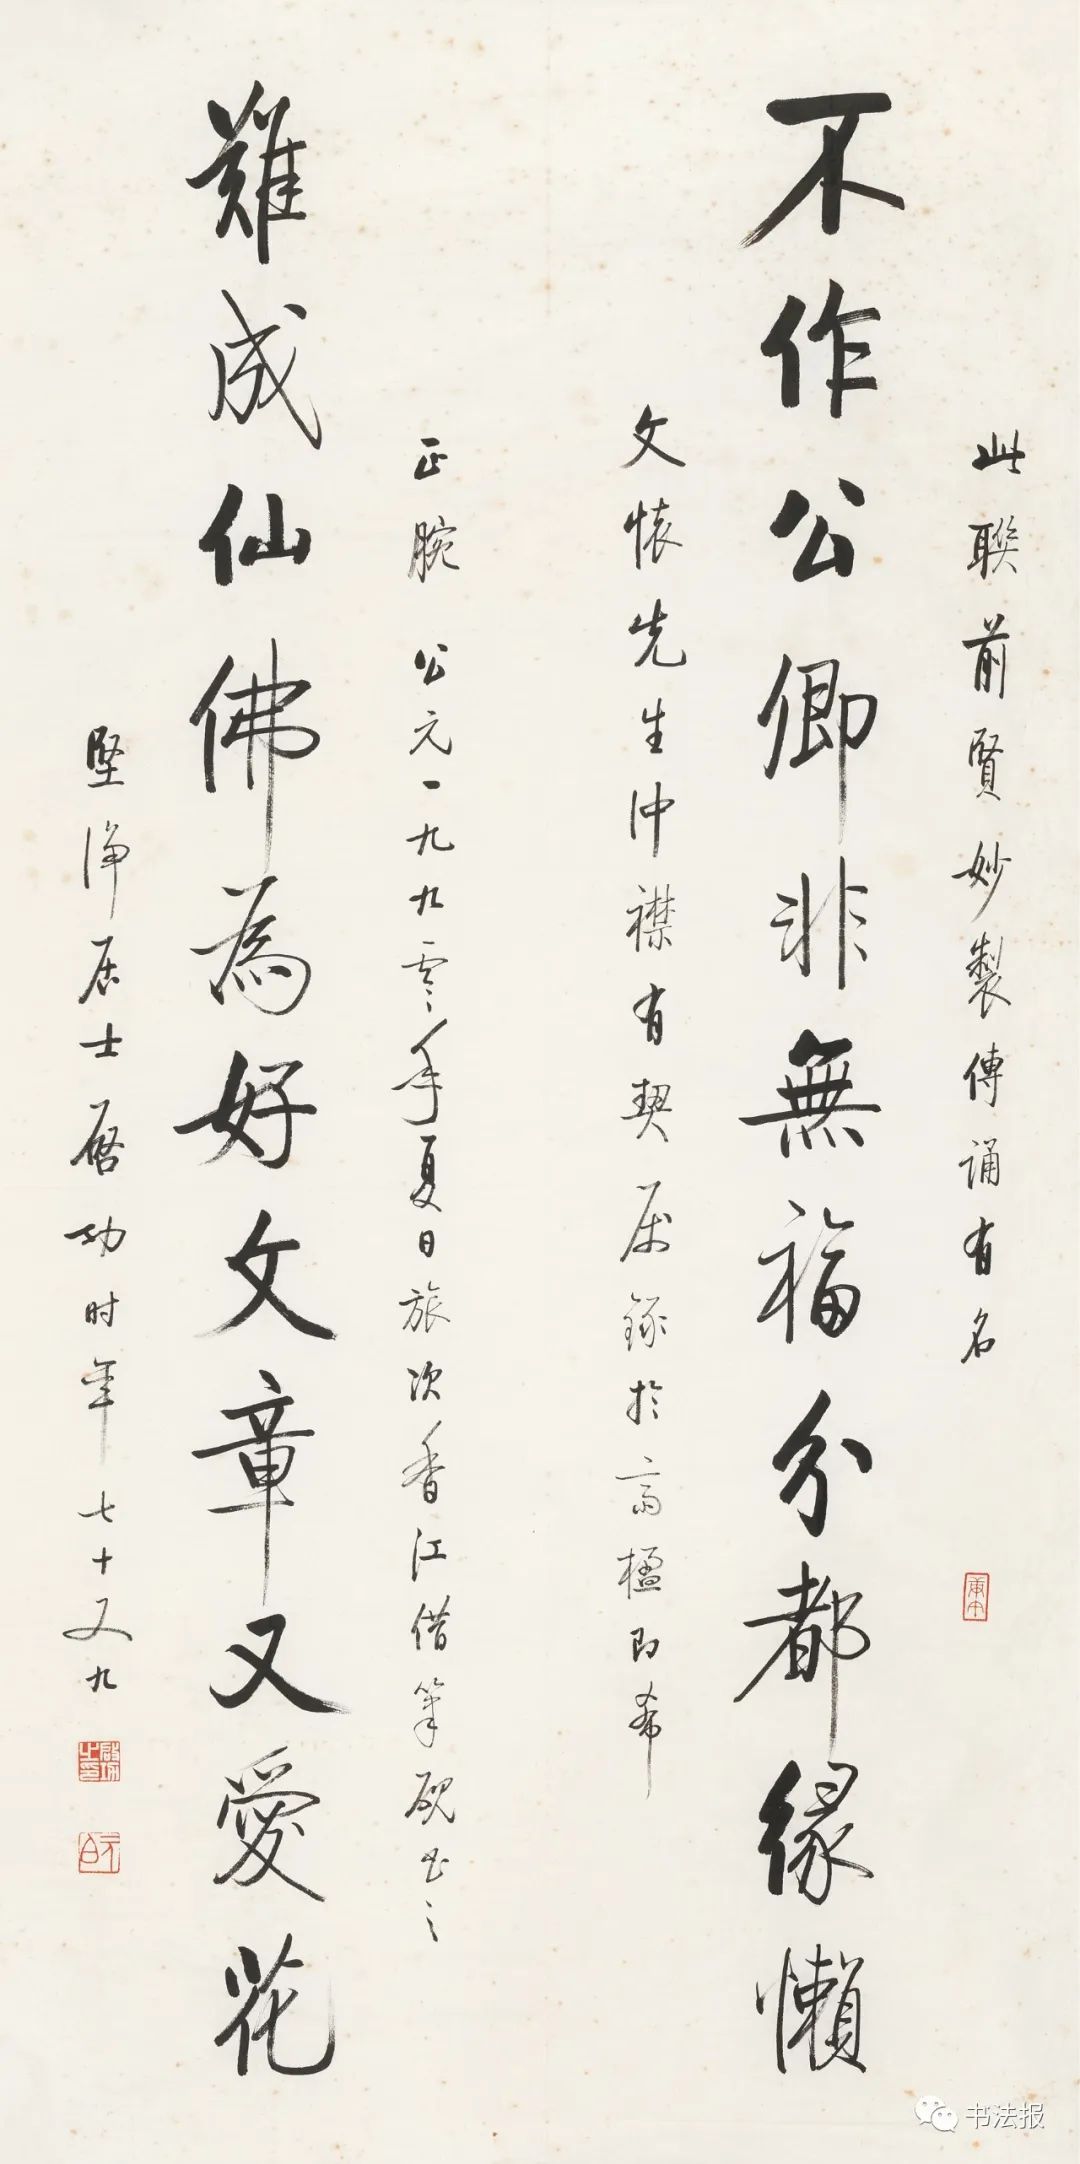 此聯前賢妙製傳誦有名
不作公卿非無福分都緣懶
文懷先生沖襟有契属錄於高楹即希
正腕 公元一九九零年夏日旅次香江借筆硯書之
難成仙佛為好文章又愛花
堅淨居士启功时年七十又九
啟功之印
元白
书法报